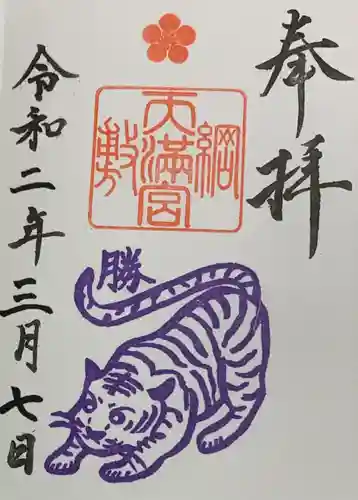 奉拝
綱敷天満宮
勝
令和二年三月七日